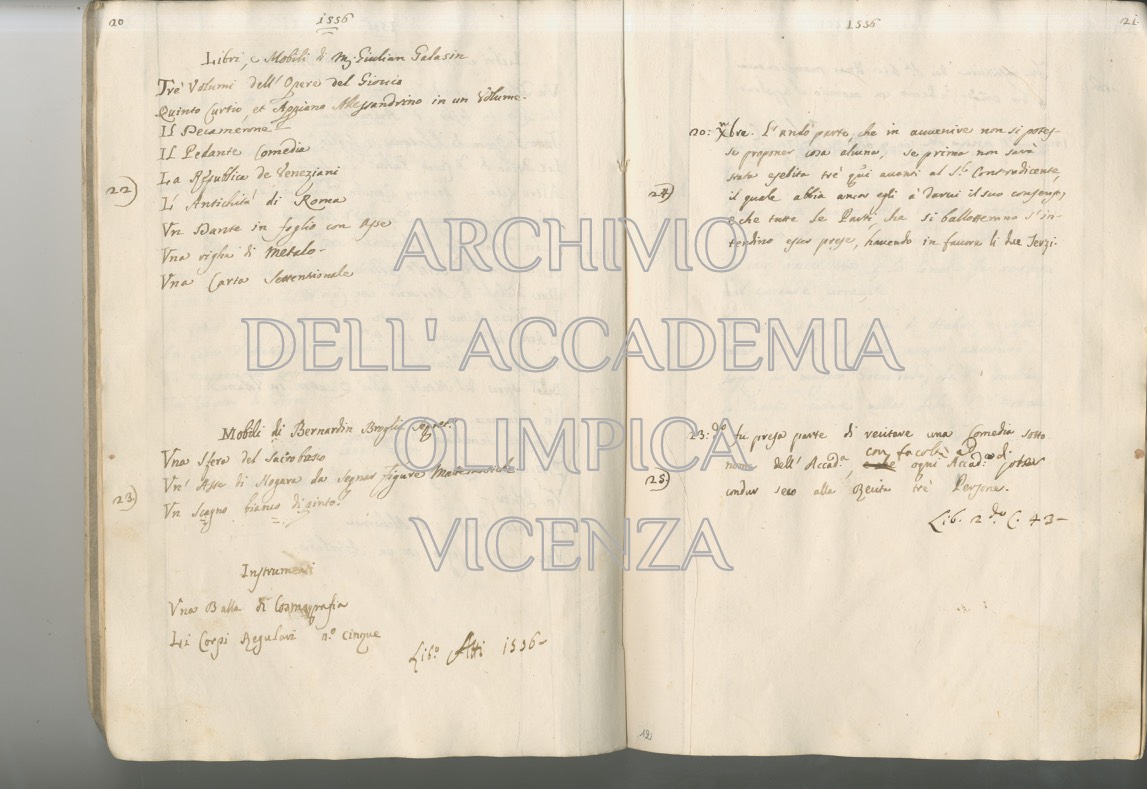 20
1556
Libri, e Mobili di M. Giulian Galasin
Trè Volumi dell' Opere del Giovio
Quinto Curtio, et Appiano Alessandrino in un Volume.
Il Decamerone
Il Pedante Comedia
La Republica de Veneziani
22)
L' Antichità di Roma
Vn Dante in foglio con Asse
Vna riglia di metalo.
Vna Carta Settentionale
Mobili di Bernardin Broglia
Vna Sfera del Sacrobosso
Vn' Asse di Nogara da segnar figure Matematiche
23)
Vn Scagno bianco dipinto.
Instrumenti
Vna Balla di Cosmografia
Li Corpi Regulari n.o cinque
Lib.o Atti 1556
1556
21.
20: Xbre. L' andò parte, che in avvenire non si potes-
se proponer cosa alcuna, se prima non sarà
stata esebita trè qui avanti al S.r Contradicente,
24)
il quale abbia anco egli à darui il suo consenso,
e che tutte le Parti, che si ballotteranno s' in-
tendino esser prese, havendo in favore li due Terzi.
23: do fu presa parte di recitare una Comedia sotto
nome dell' Accad.a con facoltà ad ogni Accad.co di poter
25.
condur seco alla Recita trè Persone.
Lib. 2.do C. 43
12
ARCHIVIO
DELL' ACCADEMIA
OLIMPICA
VICENZA